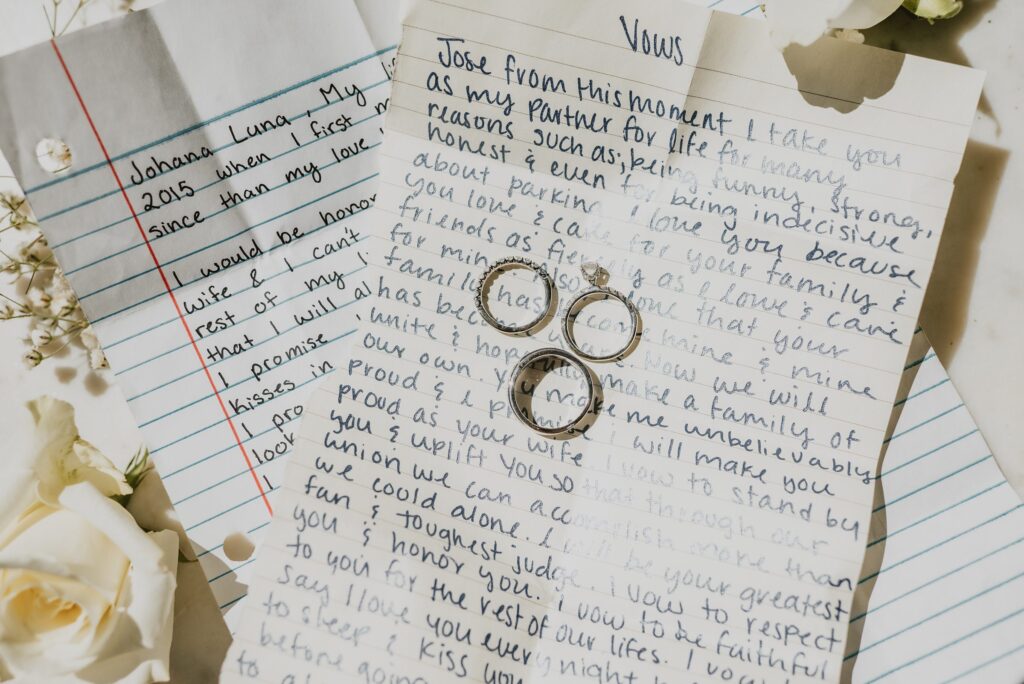 Johana Luna, My
2015 when I first
since than my love
I would be honor
wife & I can't
rest of my
that I will al
I promise
kisses in
I pro
look
I
Vows
Jose from this moment I take you
as my partner for life for many
reasons such as; being funny, strong,
honest & even for being indecisive
about parking. I love you because
you love & care for your family &
friends as fiercely as I love & care
for mine. Also love that your
family has become mine & mine
has become yours. Now we will
unite & hopefully make a family of
our own. You make me unbelievably
proud & I promise I will make you
proud as your wife. I vow to stand by
you & uplift you so that through our
union we can accomplish more than
we could alone. I will be your greatest
fan & toughest judge. I vow to respect
you & honor you. I vow to be faithful
to you for the rest of our lifes. I
say I love you every night
to sleep & kiss you
before going
to